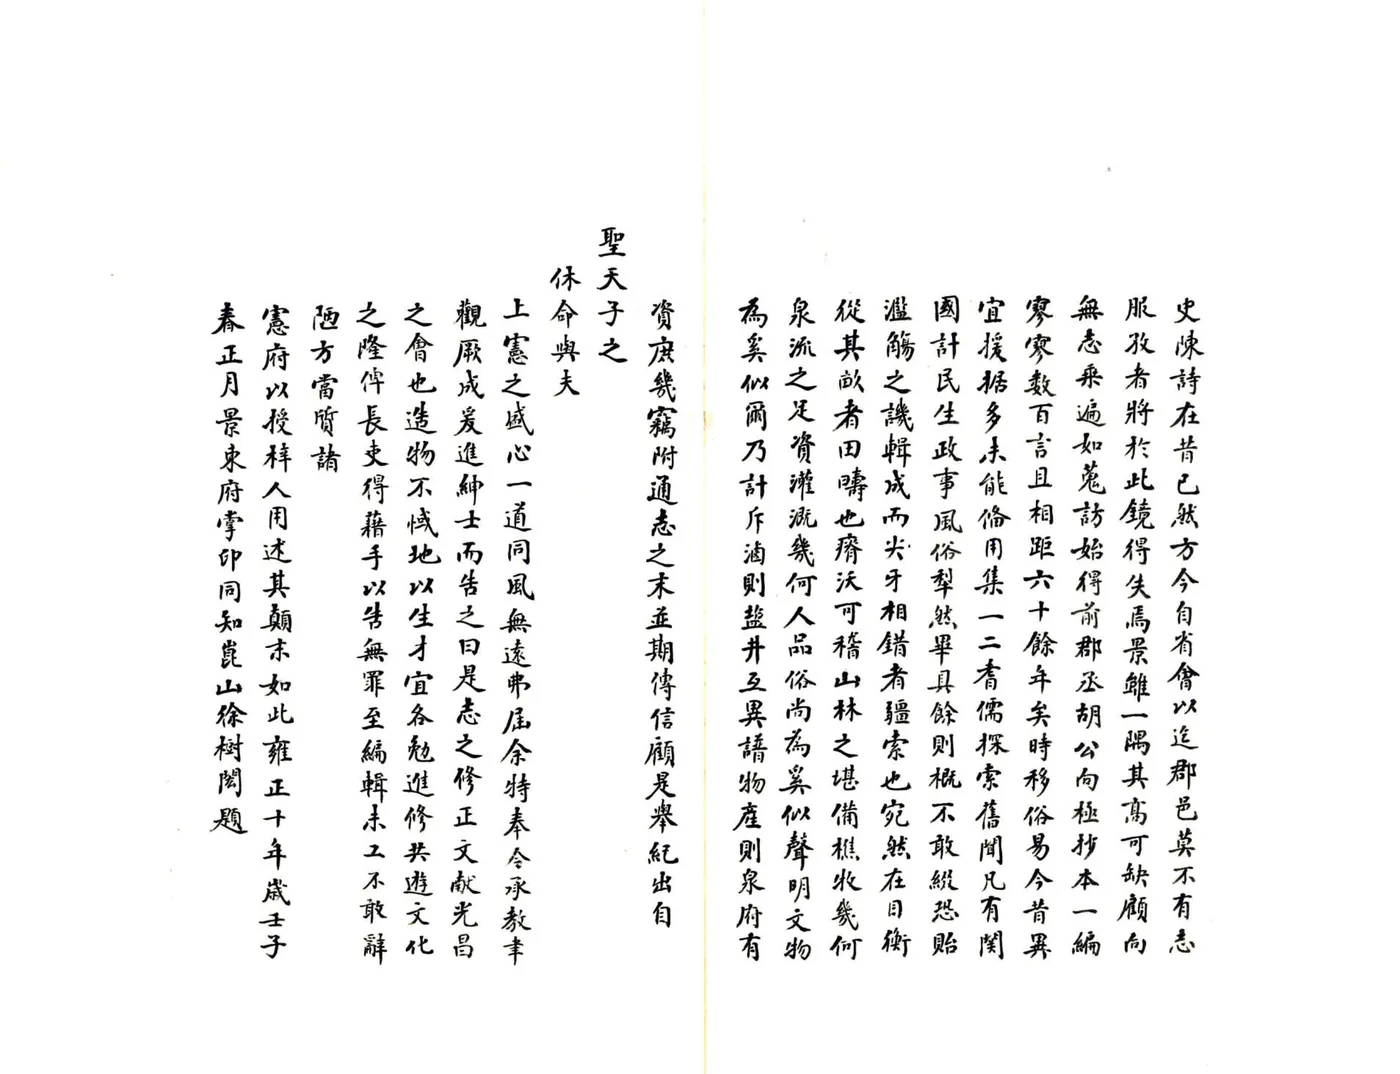 史陳詩在昔已然方今自省會以迄郡邑莫不有志
服孜者將於此鏡得失焉景雖一隅其髙可缺顧向
無志乘遍如蒐訪始得前郡丞胡公向極抄本一編
寥寥数百言且相距六十餘年矣時移俗易今昔異
宜援据多未能俻用集一二耆儒探索舊聞凡有関
國計民生政事風俗犁然畢具餘則概不敢綴恐貽
濫觴之譏輯成而尖牙相錯者疆索也宛然在目衡
從其畝者田疇也瘠沃可稽山林之堪備樵牧幾何
泉流之足資灌溉幾何人品俗尚為奚似聲明文物
為奚似爾乃計斥滷則盐井互異譜物産則泉府有
資庶幾竊附通志之末並期傳信顧是舉紀出自
聖天子之
休命與夫
上憲之盛心一道同風無遠弗届余特奉令承教聿
觀厥成爰進紳士而告之曰是志之修正文献光昌
之會也造物不悋地以生才宜各勉進修共遊文化
之隆俾長吏得藉手以告無罪至編輯未工不敢辭
陋方當質諸
憲府以授梓人用述其顛末如此雍正十年歲壬子
春正月景東府掌印同知崑山徐樹閎題